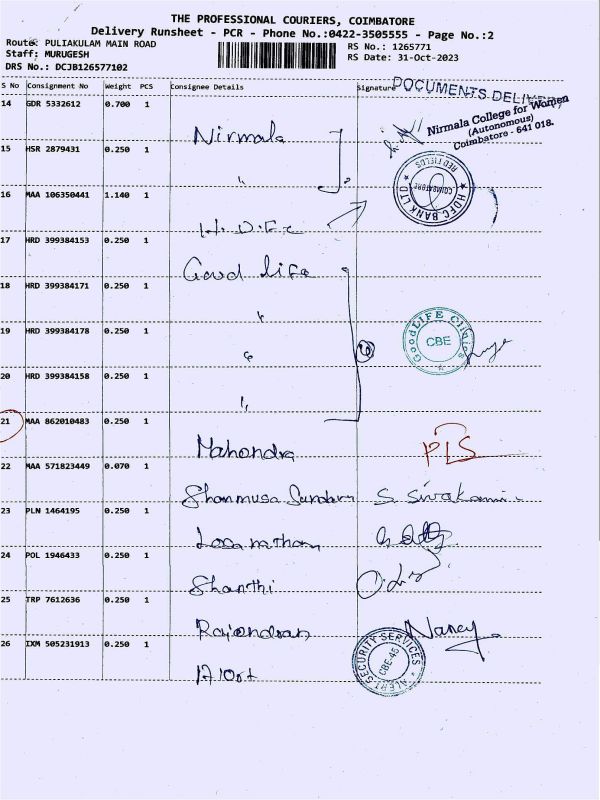 THE PROFESSIONAL COURIERS, COIMBATORE
Delivery Runsheet - PCR - Phone No.:0422-3505555 - Page No.:2
Route: PULIAKULAM MAIN ROAD
Staff: MURUGESH
DRS No.: DCJB126577102
RS No.: 1265771
RS Date: 31-Oct-2023
S No Consignment No Weight PCS Consignee Details Signature
DOCUMENTS DELIV
14 GDR 5332612 0.700 1
Nirmala
Nirmala College for Women
(Autonomous)
Coimbatore - 641 018.
15 HSR 2879431 0.250 1
"
REDFIELDS
COIMBATORE
HDFC BANK LTD
16 MAA 106350441 1.140 1
H.D.F.C
17 HRD 399384153 0.250 1
Good life
18 HRD 399384171 0.250 1
"
GoodLIFE Clinics
CBE
19 HRD 399384178 0.250 1
"
20 HRD 399384158 0.250 1
"
21 MAA 862010483 0.250 1
Mahendra PLS
22 MAA 571823449 0.070 1
Shanmuga Sundaram S. Sivakami
23 PLN 1464195 0.250 1
Loganathan
24 POL 1946433 0.250 1
Shanthi
25 TRP 7612636 0.250 1
Rajendran Nancy
26 IXM 505231913 0.250 1
Alert
ALERT SECURITY SERVICES
CBE-45